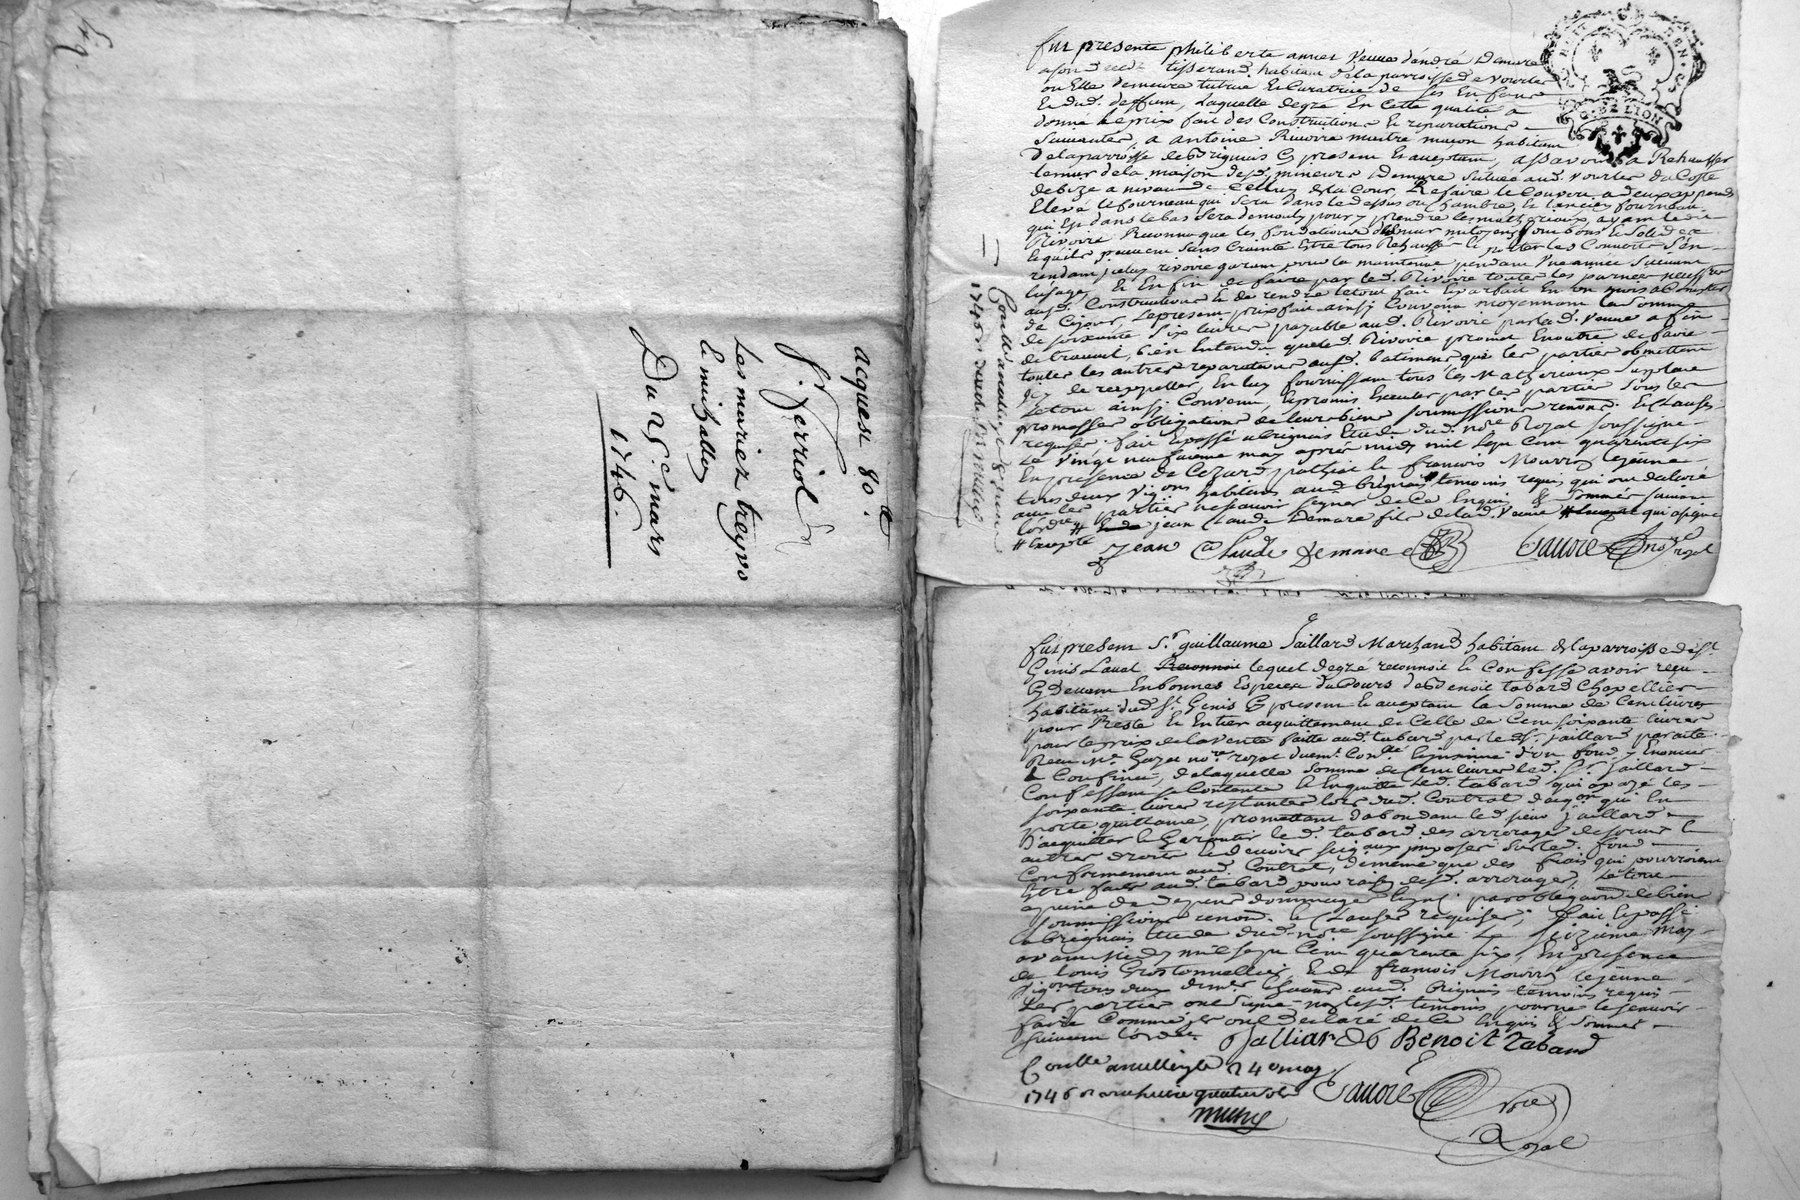 acquest 80.tt
Sr. ferriol
Les mariez treyvo
Du 25e. mars
1746.
GEN. DE LION
fut presente philiberte annet veuve d'andré Demare
tisserand habitant de la parroisse de vourles
ou Elle demeure tutrice Et Curatrice de ses Enfans
Et dud. deffunt, Laquelle degré En cette qualité a
donné Le prix fait des Constructions Et reparations
suivantes, a antoine Rivoire maitre maçon habitant
de la parroisse de Brignais Cy present Et acceptant, a sçavoir a Rehausser
le mur de la maison desd. mineurs Demare située aud. vourles du Costé
de bize a niveau de Celluy de la Cour, Refaire le Couvert a deux
Elevé le fourneau qui sera dans le dessus ou chambre, Et l'ancien fourneau
qui Est dans le bas sera demoly pour y prendre les matheriaux, ayant led.
Rivoire Reconnu que les fondations du mur mitoyen sont bons Et solides
Et quils peuvent sans Crainte Estre tous Rehaussé Et porter les Couverts s'en
rendant icelui rivoire garant pour la maintenue pendant Une année suivant
l'usage, Et En fin de faire par led. Rivoire toutes les
aud. Constructions Et de rendre le tout fait Et parfait En un mois a Compter
de Ce jour, Le present prix fait ainsy Convenu moyennant la somme
de soixante six livres payable aud. Rivoire par lad. veuve a fin
de travail, bien Entendu que led. Rivoire promet En outre de faire
toutes les autres reparations aud. batiment que les parties obmettent
jcy de rappeller, En luy fournissant tous les Matheriaux sur place
Le tout ainsy Convenu, Et promis Executer par les parties sous les
promesses obligations de leurs biens soumissions renond. Et Clauses
requises. fait Et passé a brignais Etude dud. nore Royal soussigné
Le vingt neufvieme may après midy mil sept Cent quarente six
En presence de Cezard pathiat Et francois Mourry Le jeune
tous deux vigons habitans aud. brignais temoins requis qui ont declaré
avec les parties ne sçavoir signer de Ce Enquis & sommés suivant
l'ordre # jean Claude Demare fils de lad. veuve qui a signé
# Excepté
Jean Claude Demare
Favre nore royal
Conlle. a
1746
fut present Sr. guillaume Jaillard Marchand habitant de la parroisse de st.
Genis Laval lequel degré reconnoit Et Confesse avoir reçu
Cy devant En bonnes Especes du Cours de Benoit tabard Chapellier
habitant dud. st. Genis Cy present Et acceptant la somme de Cent livres
pour Reste Et Entier acquittement de Celle de Cent soixante livres
pour le prix de la vente faitte aud. tabard par led. sr. jaillard par acte
Reçu Me. Gazot nore. royal
Et Confiné, de laquelle somme de Cent livres led. sr. Jaillard
Confessant se Contente Et En quitte led. tabard qui a payé les
soixante livres restantes lors dud. Contrat d'acqon. qui En
porte quittance, promettant d'abondant led. sieur Jaillard
D'acquitter Et Garantir led. tabard des arrerages de servis Et
autres droits Et devoirs seigaux imposés sur led. fond
Conformement aud. Contrat, de même que des frais qui pourroient
Estre faits aud. tabard pour raison desd. arrerages, Le tout
a peine de depens dommages par obligaon de biens
soumissions renond. Et Clauses requises; fait Et passé
a brignais Etude dud. nore soussigné Le seizieme May
avant Midy mil sept Cent quarente six, En presence
de Louis Grostonnellier, Et de francois Mourry le jeune
vigons tous deux demt. Chacun aud. Brignais temoins requis
Les parties ont signé non lesd. temoins pour ne le sçavoir
faire Comme ils ont declaré de Ce Enquis & sommés
suivant l'ordce.
Jalliard Benoit Tabard
Conlle a le 24e may
1746 Favre nore
Royal